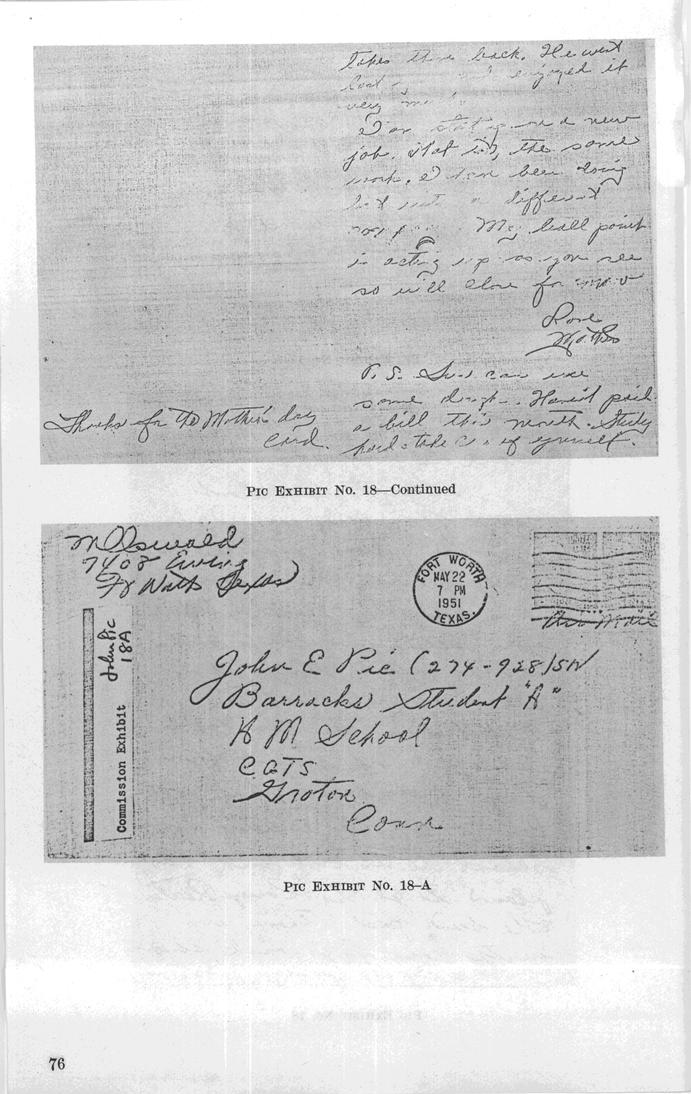 takes them back. He went
enjoyed it
very
I am starting on a new
job. that is, the same
work. I have been doing
but with a different
My ball point
is acting up as you see
so will close for now
Love
Mother
P.S. Sure can use
some dough. Haven't paid
a bill this month. Study
hard & take care of yourself.
Thanks for the Mother's day
card.
PIC EXHIBIT NO. 18—Continued
M Oswald
7408 Ewing
Ft Worth Texas
FORT WORTH
MAY 22
7 PM
1951
TEXAS.
Air Mail
John Pic
18A
Commission Exhibit
John E Pic (274-928) SN
Barracks Student "A"
H M School
C G T S
Groton
Conn
PIC EXHIBIT NO. 18-A
76